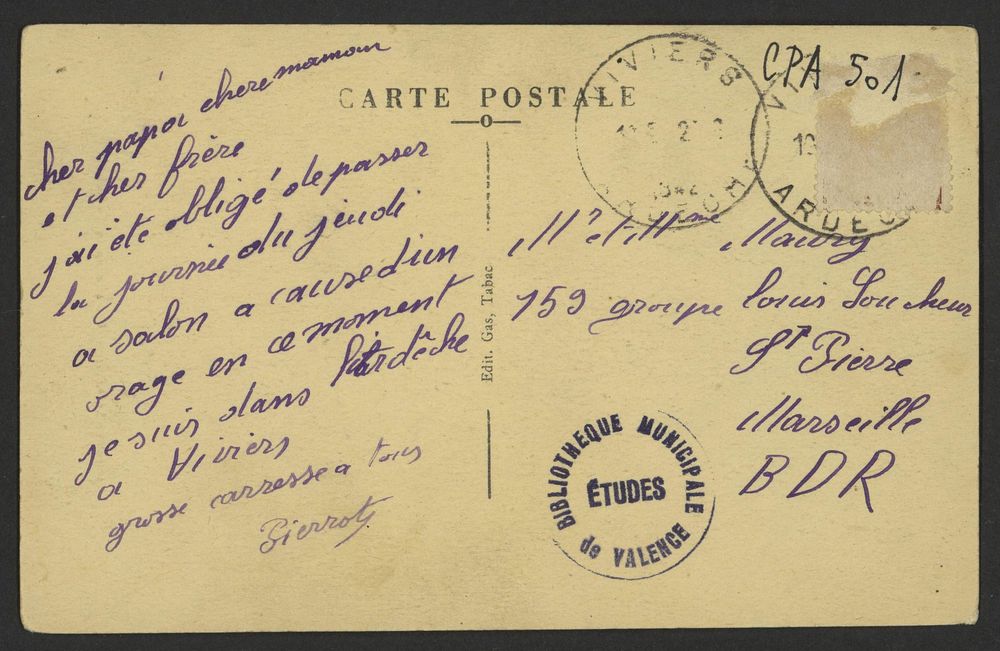 CARTE POSTALE
cher papa chere maman
et cher frère
j'ai été obligé de passer
la journée du jeudi
a salon a cause d'un
orage en ce moment
je suis dans l'Ardêche
a Viviers
grosse carresse a tous
Pierrot
Edit. Gas, Tabac
VIVIERS
1942
CPA 501
ARDEC
Mr et Mme Maury
159 groupe louis Loucheur
St Pierre
Marseille
BDR
BIBLIOTHEQUE MUNICIPALE
ÉTUDES
de VALENCE